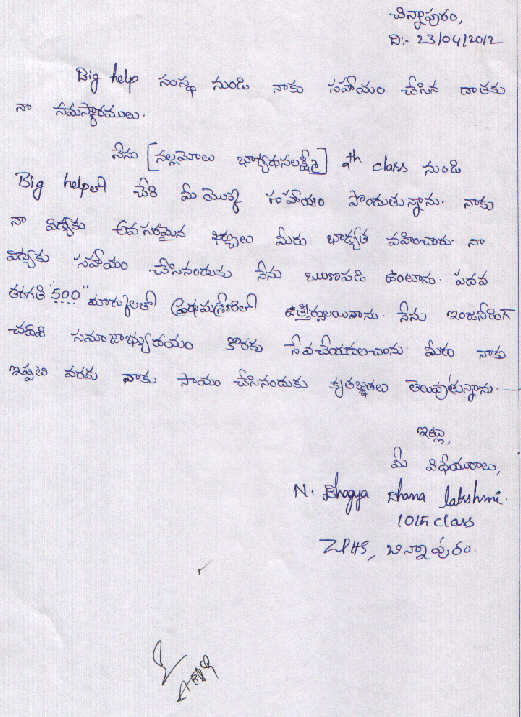 చిన్నాపురం,
ది:- 23/04/2012
Big help సంస్థ నుండి నాకు సహాయం చేసిన దాతకు
నా నమస్కారములు.
నేను [నల్లమోలు భాగ్యధనలక్ష్మి] 7th class నుండి
Big helpలో చేరి మీ యొక్క సహాయం పొందుతున్నాను. నాకు
నా విద్యకు అవసరమైన ఖర్చులు మీరు బాధ్యత వహించారు. నా
విద్యకు సహాయం చేసినందుకు నేను ఋణపడి ఉంటాను. పదవ
తరగతి "500" మార్కులతో ప్రథమశ్రేణిలో ఉత్తీర్ణులయినాను. నేను ఇంజనీరింగ్
చదివి సమాజాభ్యుదయం కొరకు సేవచేయగలవాను. మీరు నాకు
ఇప్పటి వరకు నాకు సాయం చేసినందుకు కృతజ్ఞతలు తెలుపుతున్నాను.
ఇట్లు,
మీ విధేయురాలు,
N. Bhagya Dhana lakshmi.
10th class
ZPHS, చిన్నాపురం.